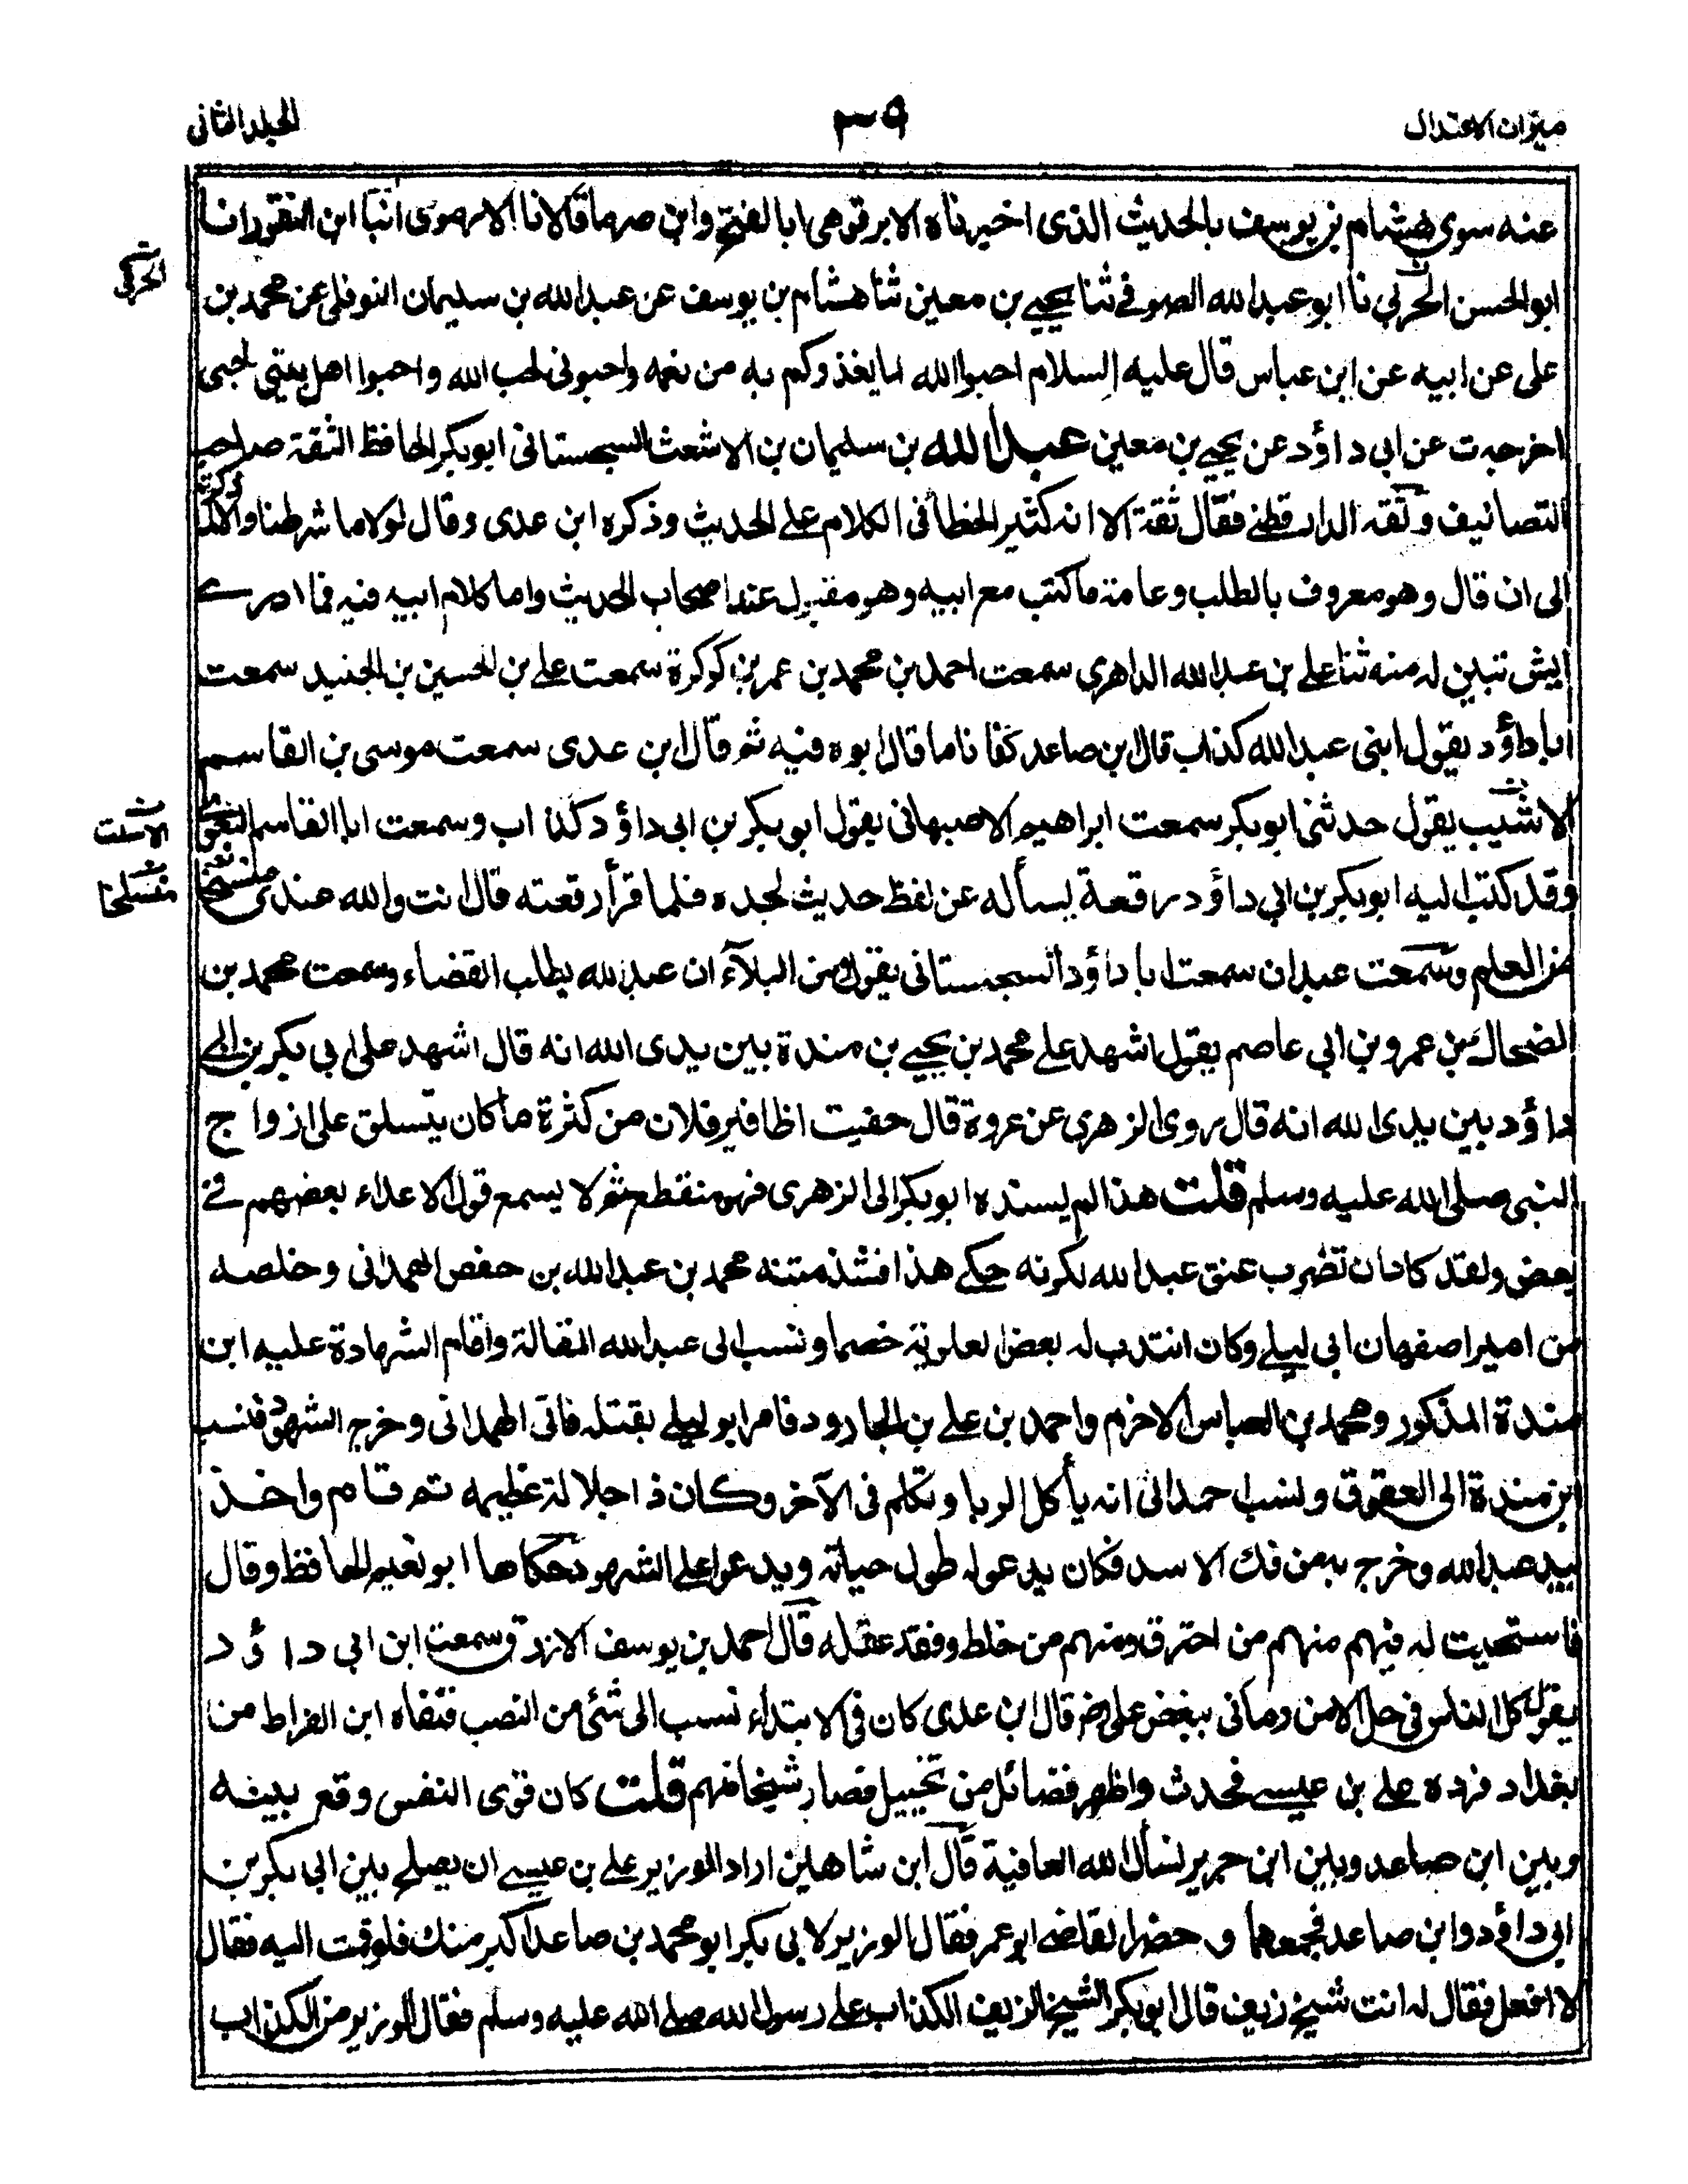 ميزان الاعتدال
٣٩
الجلد الثانى
عنه سوى هشام بن يوسف بالحديث الذى اخبرناه الابرقوهى ابا الفتح وابن صرما قالا نا الارموى انبا ابن النقور انا
ابو الحسن الحربي نا ابو عبد الله الصوفى ثنا يحيى بن معين ثنا هشام بن يوسف عن عبد الله بن سليمان النوفلى عن محمد بن
الحركى
على عن ابيه عن ابن عباس قال عليه السلام احبوا الله لما يغذوكم به من نعمه واحبونى لحب الله واحبوا اهل بيتى لحبى
اخرجه ت عن ابي داؤد عن يحيى بن معين عبد الله بن سليمان بن الاشعث السجستانى ابو بكر الحافظ الثقة صاحب
التصانيف وثقه الدارقطنى فقال ثقة الا انه كثير الخطأ فى الكلام على الحديث وذكره ابن عدى وقال لولا ما شرطنا والا لما ذكرته
الى ان قال وهو معروف بالطلب وعامة ما كتب مع ابيه وهو مقبول عند اصحاب الحديث واما كلام ابيه فيه فما ادرى
ايش تبين له منه ثنا على بن عبد الله الداهرى سمعت احمد بن محمد بن عمر بن كركرة سمعت على بن الحسين بن الجنيد سمعت
ابا داؤد يقول ابنى عبد الله كذاب قال ابن صاعد كفانا ما قال ابوه فيه ثم قال ابن عدى سمعت موسى بن القاسم
الاشيب يقول حدثنى ابو بكر سمعت ابراهيم الاصبهانى يقول ابو بكر بن ابى داؤد كذاب وسمعت ابا القاسم البغوى
الاسلت
وقد كتب اليه ابو بكر بن ابي داؤد رقعة يسأله عن لفظ حديث لجده فلما قرأ رقعته قال انت والله عندى منسلخ
منسلخا
من العلم وسمعت عبدان سمعت ابا داؤد السجستانى يقول من البلآء ان عبد الله يطلب القضاء وسمعت محمد بن
الضحاك بن عمرو بن ابي عاصم يقول اشهد على محمد بن يحيى بن مندة بين يدى الله انه قال اشهد على ابى بكر بن ابى
داؤد بين يدى الله انه قال روى الزهرى عن عروة قال حفيت اظافير فلان من كثرة ما كان يتسلق على ازواج
النبى صلى الله عليه وسلم قلت هذا لم يسنده ابو بكر الى الزهرى فهو منقطع ثم لا يسمع قول الاعداء بعضهم فى
بعض ولقد كاد ان تضرب عنق عبد الله لكونه حكى هذا فشذ متنه محمد بن عبد الله بن حفص الهمدانى وخلصه
من امير اصفهان ابى ليلى وكان انتدب له بعض العلوية خصما ونسب الى عبد الله المقالة واقام الشهادة عليه ابن
مندة المذكور ومحمد بن العباس الاخرم واحمد بن على بن الجارود فامر ابو ليلى بقتله فاتى الهمدانى وخرج الشهود فنسب
ابن مندة الى العقوق ونسب احمد الى انه يأكل الربا وتكلم فى الآخر وكان ذا جلالة عظيمه ثم قام واخذ
بيد عبد الله وخرج به من فك الاسد فكان يدعو له طول حياته ويدعو على الشهود حكاها ابو نعيم الحافظ وقال
فاستجيب له فيهم منهم من احترق ومنهم من خلط وفقد عقله قال احمد بن يوسف الازرق سمعت ابن ابى داؤد
يقول كل الناس فى حل الا من رمانى ببغض على رض قال ابن عدى كان فى الابتداء نسب الى شئ من النصب فنفاه ابن الفراط من
بغداد فرده على بن عيسى فحدث واظهر فضائل من تخييل فصار شيخا فيهم قلت كان قوى النفس وقع بينه
وبين ابن صاعد وبين ابن جرير نسأل الله العافية قال ابن شاهين اراد الوزير على بن عيسى ان يصلح بين ابى بكر بن
ابى داؤد وابن صاعد فجمعهما و حضر القاضى ابو عمر فقال الوزير لابى بكر ابو محمد بن صاعد اكبر منك فلو قمت اليه فقال
لا افعل فقال له انت شيخ زيف قال ابو بكر الشيخ الزيف الكذاب على رسول الله صلى الله عليه وسلم فقال الوزير من الكذاب